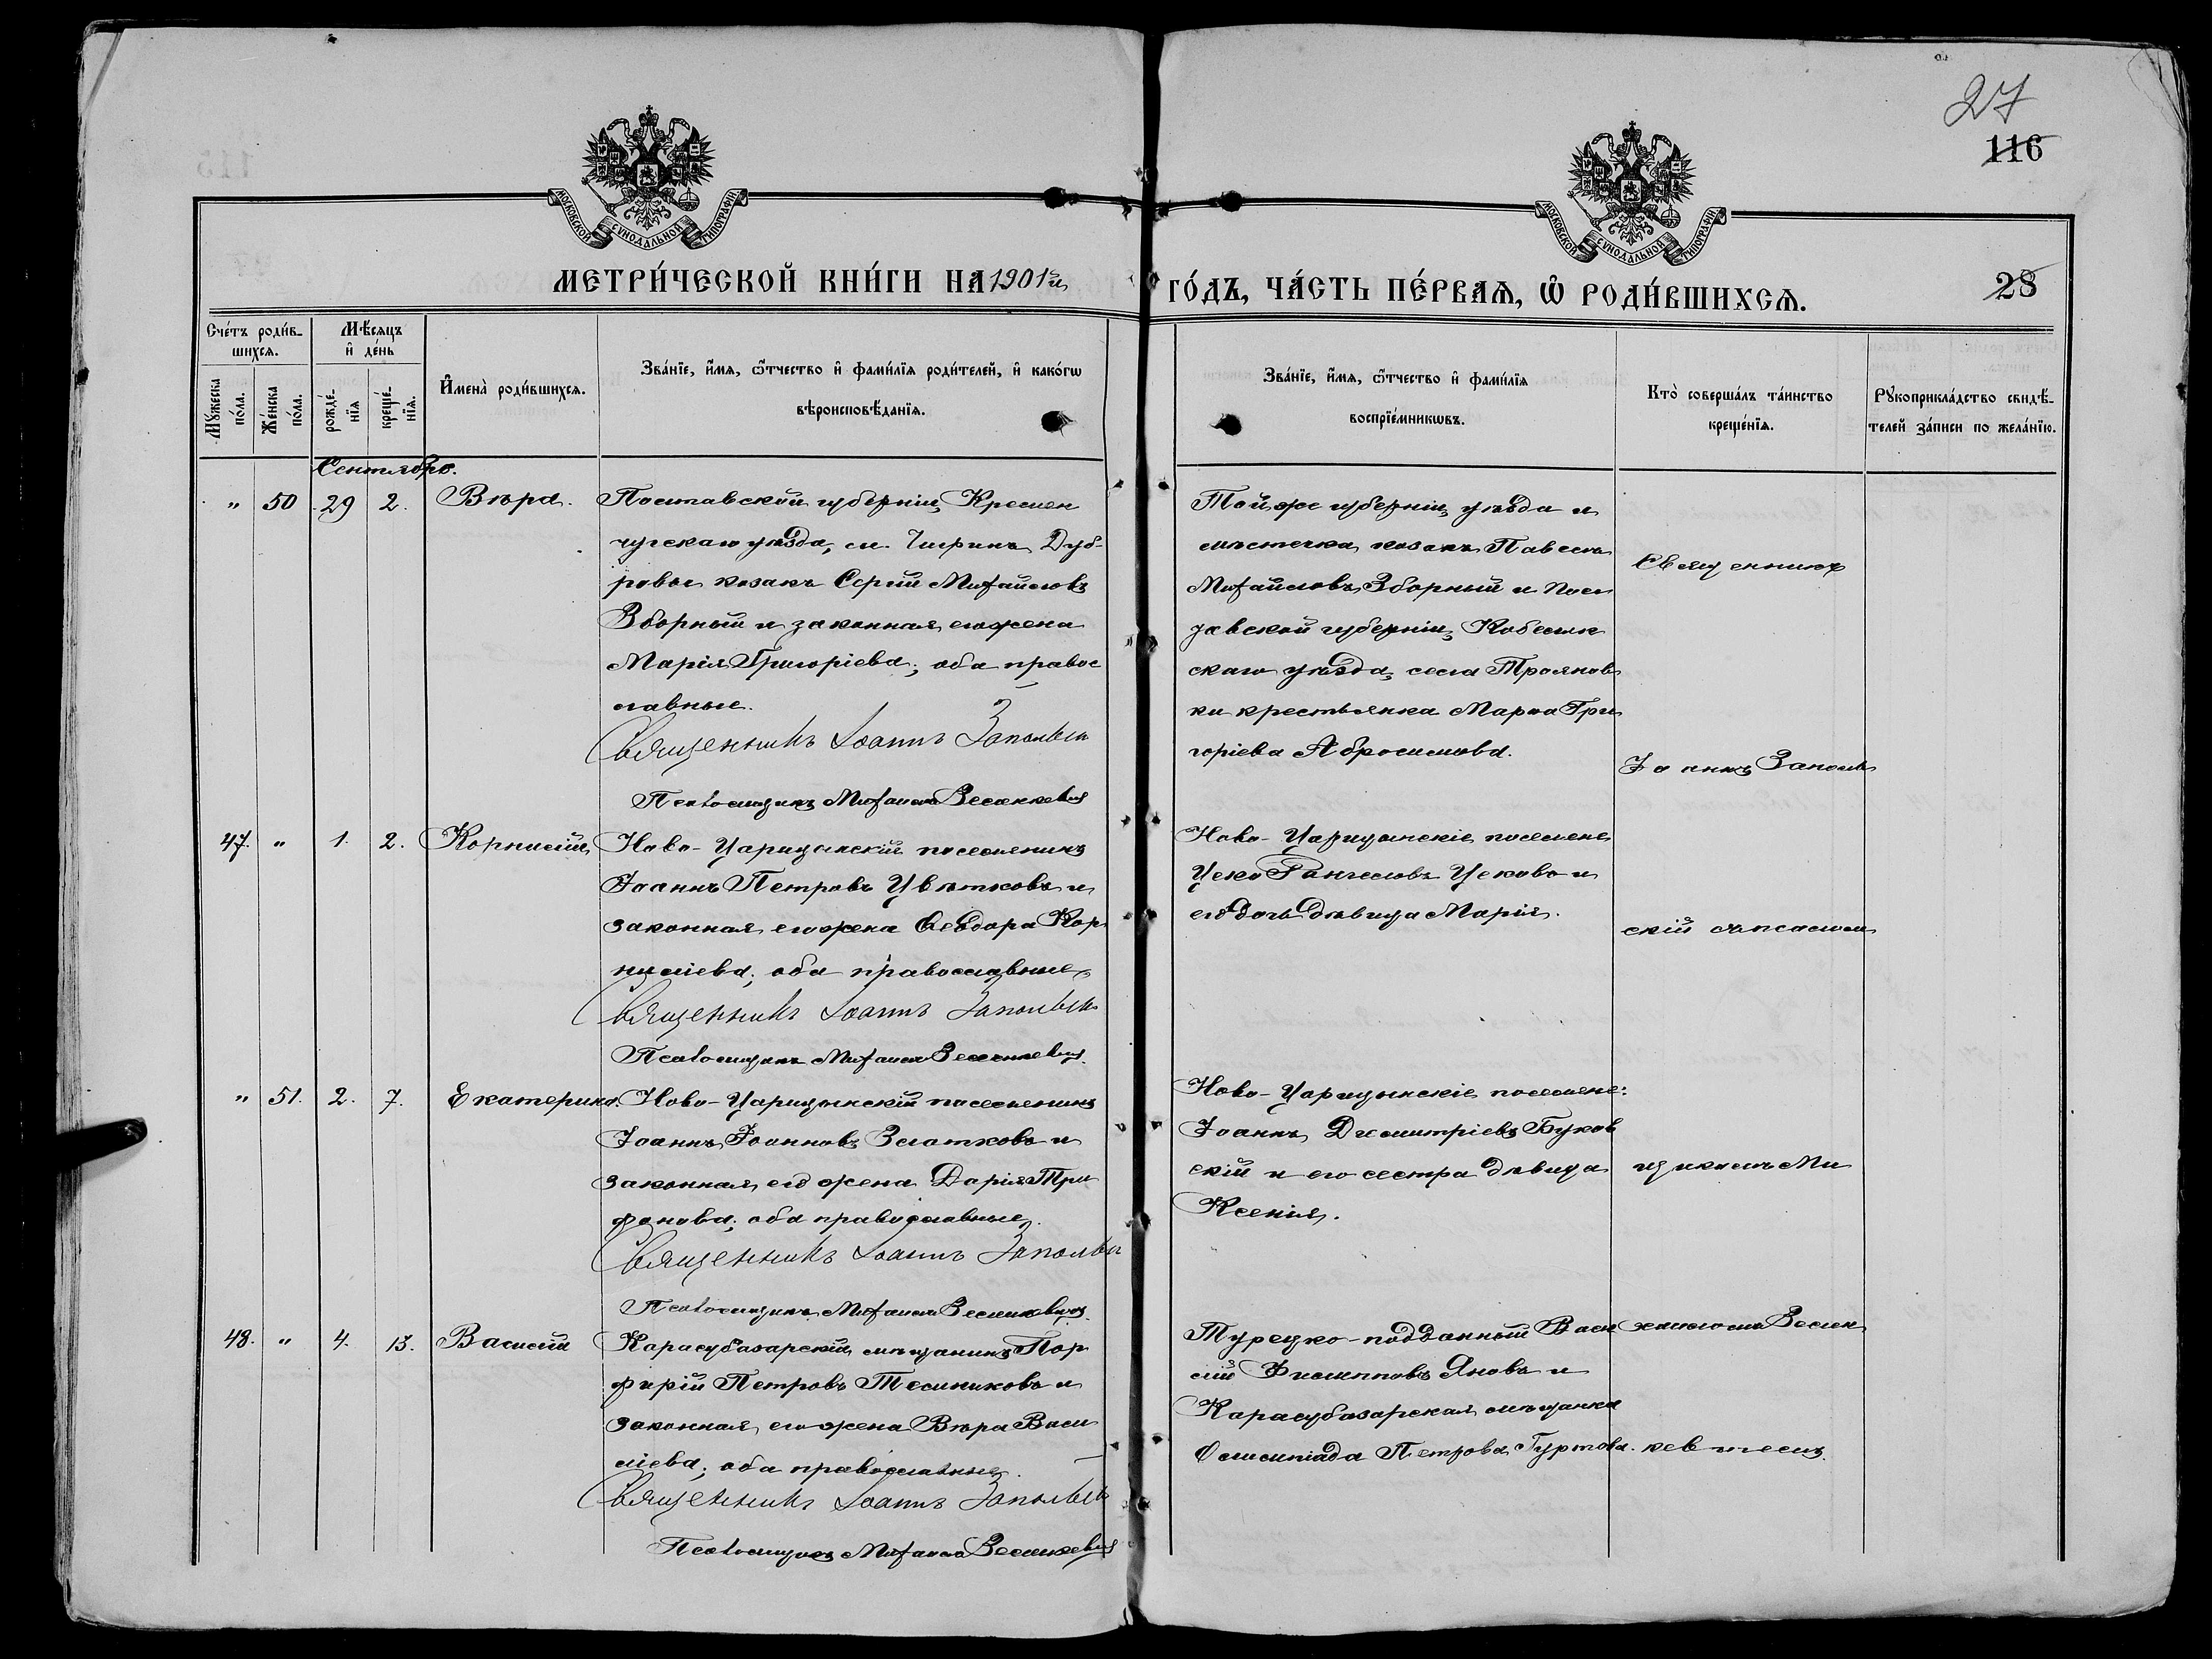 27
116
МОСКОВСКОЙ СѴНОДАЛЬНОЙ ТИПОГРАФІИ.
МОСКОВСКОЙ СѴНОДАЛЬНОЙ ТИПОГРАФІИ.
МЕТРИ́ЧЕСКОЙ КНИ́ГИ НА 1901й
ГО́ДЪ, ЧА́СТЬ ПЕ́РВАѦ, Ѡ РОДИ́ВШИХСѦ.
28
Сче́тъ роди́в-
шихсѧ.
Мѣ́сѧцъ
и҆ де́нь
Мꙋ́жеска
по́ла.
Же́нска
по́ла.
рожде́-
нїѧ
креще́-
нїѧ.
И҆мена̀ роди́вшихсѧ.
Зва́нїе, и҆́мѧ, ѻ҆́тчество и҆ фами́лїѧ роди́телей, и҆ како́гѡ
вѣроисповѣ́данїѧ.
Зва́нїе, и҆́мѧ, ѻ҆́тчество и҆ фами́лїѧ
воспрїе́мникѡвъ.
Кто̀ соверша́лъ та́инство
креще́нїѧ.
Рꙋкоприкла́дство свидѣ́-
телей за́писи по жела́нїю.
Сентябрь.
" 50 29 2. Вѣра.
Полтавской губерніи, Кремен
чугскаго уѣзда, м. Чигринъ Дуб-
ровы козакъ Сергій Михайловъ
Зборный и законная его жена
Марія Григоріева; оба правос
лавные.
Священникъ Іоаннъ Запольск
Псаломщикъ Михаилъ Зеленкевич
Той же губерніи, уѣзда и
мѣстечка козакъ Павелъ
Михайловъ Зборный и Пол
тавской губерніи, Кобеляк
скаго уѣзда, села Троянов
ки крестьянка Марѳа Гри
горіева Абросимова.
Священникъ
Іоаннъ Заполь
47. " 1. 2. Корнилій
Ново-Царицынскій поселянинъ
Іоаннъ Петровъ Цвѣтковъ и
законная его жена Ѳеодора Кор
ниліева; оба православные.
Священникъ Іоаннъ Запольск
Псаломщикъ Михаилъ Зеленкевич.
Ново-Царицынскіе поселяне
Цеко Ранчеловъ Цековъ и
его дочь дѣвица Марія.
скій съ псалом
" 51. 2. 7. Екатерина.
Ново-Царицынскій поселянинъ
Іоаннъ Іоанновъ Златковъ и
законная его жена Дарія Три
фонова; оба православные.
Священникъ Іоаннъ Запольск
Псаломщикъ Михаилъ Зеленкевич.
Ново-Царицынскіе поселяне:
Іоаннъ Димитріевъ Буков
скій и его сестра дѣвица
Ксенія.
щикомъ Ми
48. " 4. 13. Василій
Карасубазарскій мѣщанинъ Пор
фирій Петровъ Тельниковъ и
законная его жена Вѣра Васи
ліева; оба православные.
Священникъ Іоаннъ Запольск
Псаломщикъ Михаилъ Зеленкевич
Турецко-подданный Васи
лій Филипповъ Яновъ и
Карасубазарская мѣщанка
Олимпіада Петрова Гуртова.
хаиломъ Зелен
кевичемъ.